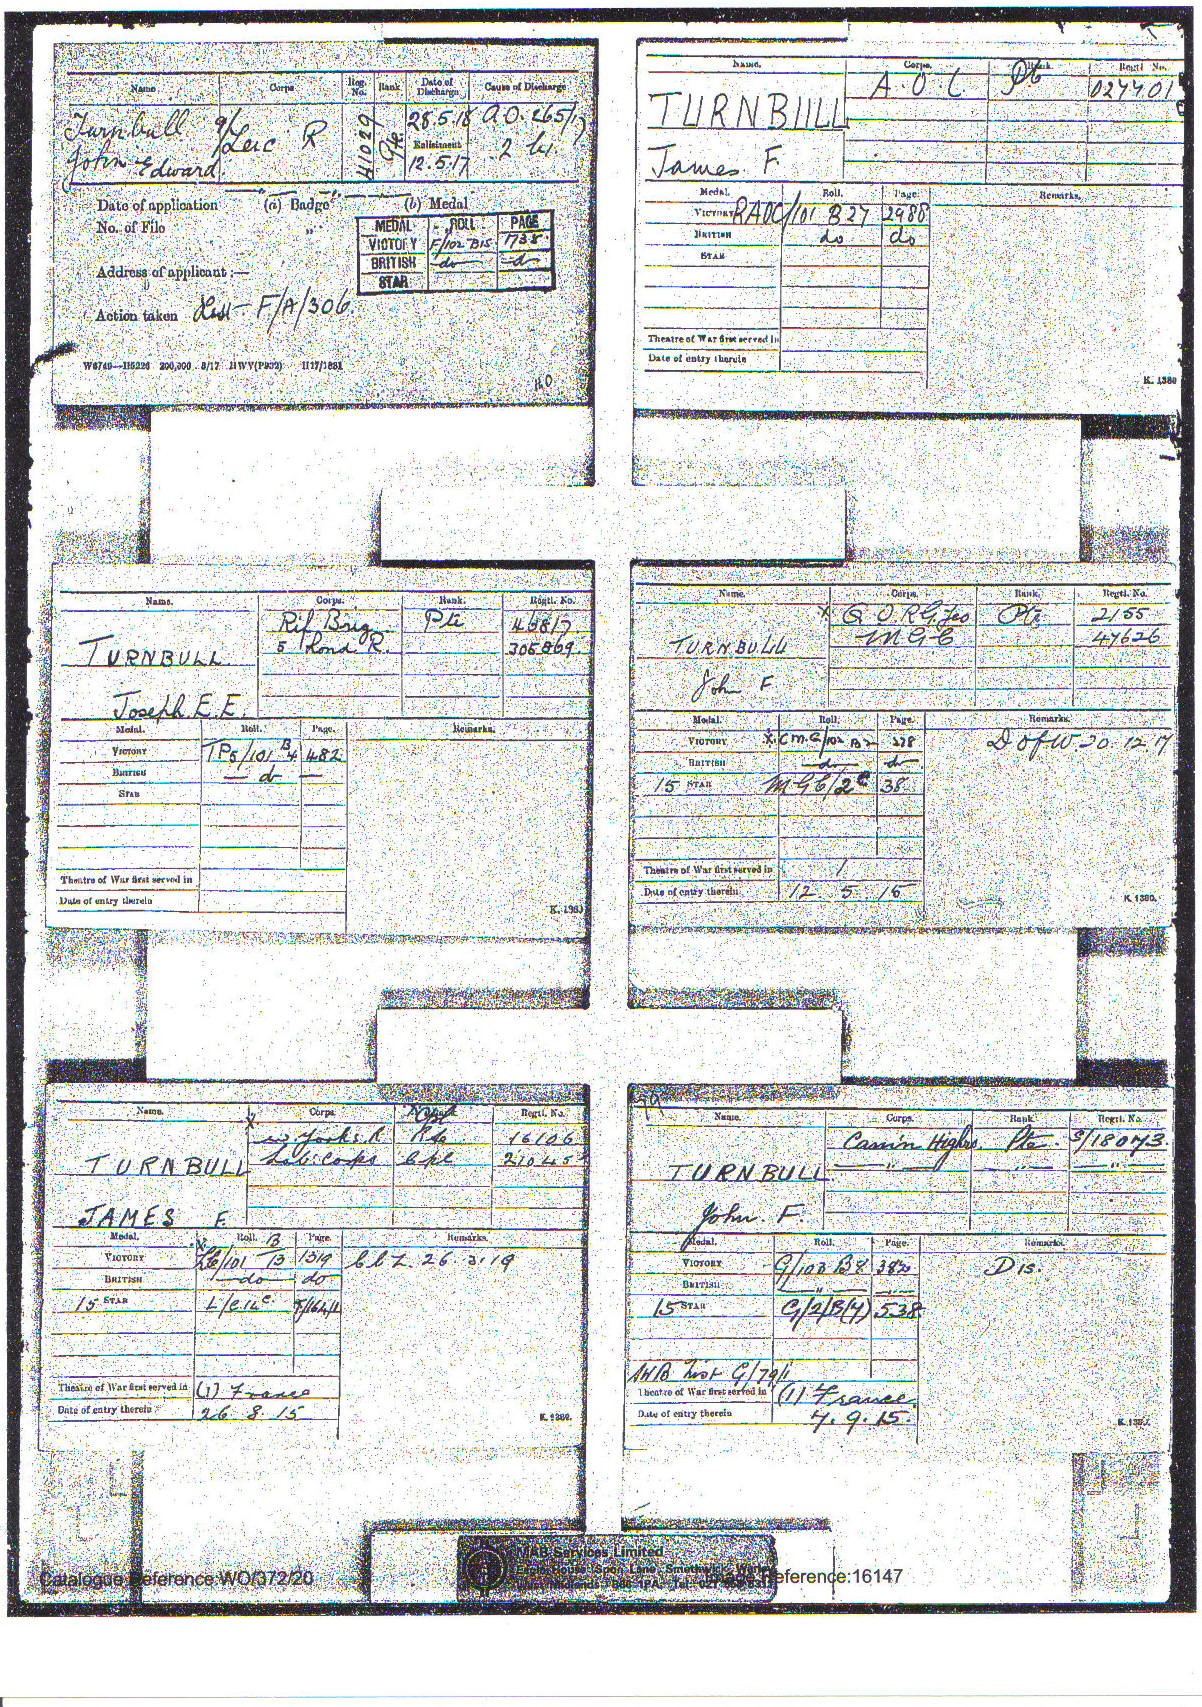 Name Corps Reg. No. Rank Date of Discharge Cause of Discharge
Turnbull 9/Leic R 41029 Pte 28.5.18 A.O. 265/17
John Edward Enlistment 12.5.17 2 b i.
Date of application (a) Badge (b) Medal
No. of File "
MEDAL ROLL PAGE
VICTORY F/102 B15 1738
BRITISH do do
STAR
Address of applicant :—
Action taken List F/A/306.
W6749—H5226 200,000 8/17 HWV(P932) H17/1881
Name. Corps. Rank. Regtl. No.
TURNBULL A.O.C Pte 027701
James F.
Medal. Roll. Page. Remarks.
VICTORY RAOC/101 B27 2988
BRITISH do do
STAR
Theatre of War first served in
Date of entry therein
K. 1380
Name. Corps. Rank. Regtl. No.
Rif Brig Pte 46817
TURNBULL 5 Lond R. 305869
Joseph E.E.
Medal. Roll. Page. Remarks.
VICTORY TP5/101 B4 482
BRITISH — do —
STAR
Theatre of War first served in
Date of entry therein
K. 1380
Name. Corps. Rank. Regtl. No.
x Q.O.R.G. Yeo Pte 2155
TURNBULL M.G.C 47626
John F
Medal. Roll. Page. Remarks.
VICTORY x CMG/102 B2 278 D of W 20.12.17
BRITISH do do
15 STAR MGC/2C 38
Theatre of War first served in 1
Date of entry therein 12. 5. 15
K. 1380.
Name. Corps. Rank Regtl. No.
x W Yorks. R Pte 16106
TURNBULL Lab: Corps Cpl 21045
JAMES F.
Medal. Roll. B Page. Remarks.
VICTORY /101 B 1319 Cl Z. 26.3.19
BRITISH do do
15 STAR L/C.14C
Theatre of War first served in (1) France
Date of entry therein 26.8.15
K. 1380.
Name. Corps. Rank. Regtl. No.
Cam'n Highrs Pte S/18073.
TURNBULL — " — " — " —
John. F.
Medal. Roll. Page. Remarks
VICTORY G/103 B8 382 Dis.
BRITISH — " — —
15 STAR G/2/B(4) 538
SWB List G/79/1
Theatre of War first served in (1) France.
Date of entry therein 7.9.15.
K. 1380.
MAB Services Limited
Eagle House Spon Lane Smethwick Warley
West Midlands B66 1PA Tel:-021
Catalogue Reference:WO/372/20 Image Reference:16147